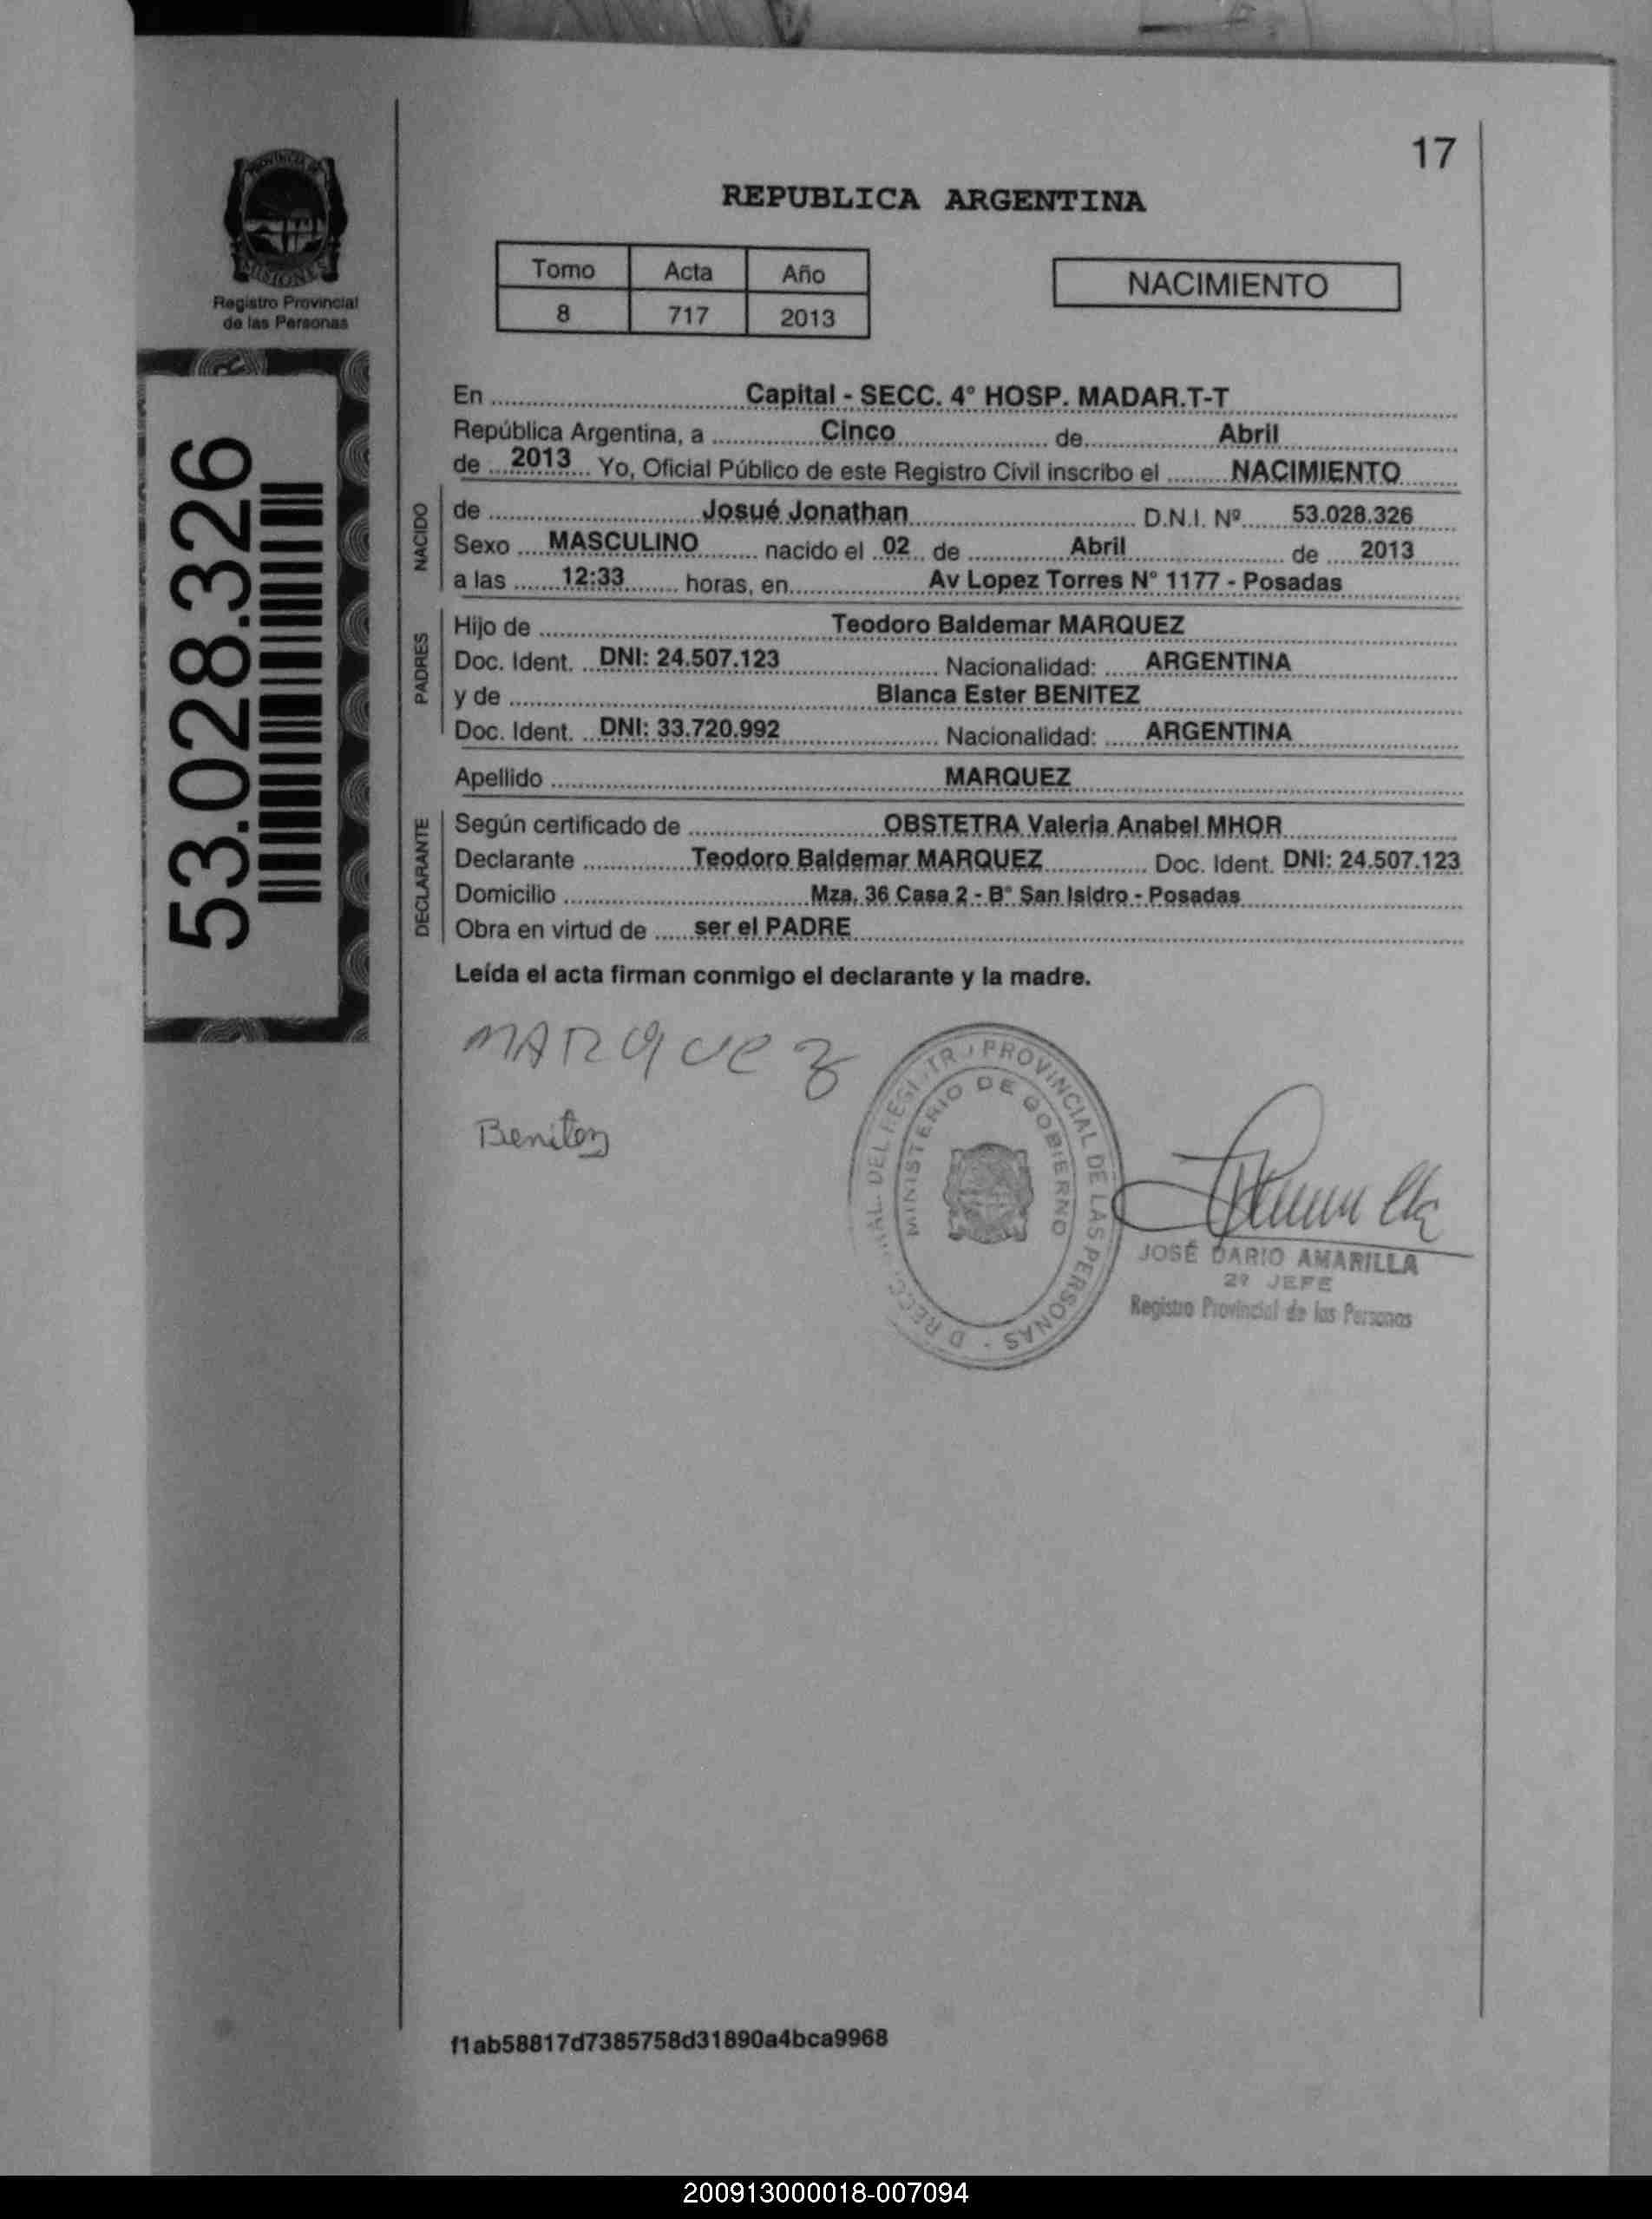 17
PROVINCIA DE
MISIONES
Registro Provincial
de las Personas
53.028.326
REPUBLICA ARGENTINA
Tomo Acta Año
8 717 2013
NACIMIENTO
En ..... Capital - SECC. 4° HOSP. MADAR.T-T
República Argentina, a ..... Cinco ..... de ..... Abril
de ... 2013 ... Yo, Oficial Público de este Registro Civil inscribo el ..... NACIMIENTO
NACIDO
de ..... Josué Jonathan ..... D.N.I. Nº ..... 53.028.326
Sexo .... MASCULINO ..... nacido el .. 02 .. de ..... Abril ..... de ..... 2013
a las ..... 12:33 ..... horas, en ..... Av Lopez Torres N° 1177 - Posadas
PADRES
Hijo de ..... Teodoro Baldemar MARQUEZ
Doc. Ident. .. DNI: 24.507.123 ..... Nacionalidad: ..... ARGENTINA
y de ..... Blanca Ester BENITEZ
Doc. Ident. .. DNI: 33.720.992 ..... Nacionalidad: ..... ARGENTINA
Apellido ..... MARQUEZ
DECLARANTE
Según certificado de ..... OBSTETRA Valeria Anabel MHOR
Declarante ..... Teodoro Baldemar MARQUEZ ..... Doc. Ident. DNI: 24.507.123
Domicilio ..... Mza. 36 Casa 2 - B° San Isidro - Posadas
Obra en virtud de ..... ser el PADRE
Leída el acta firman conmigo el declarante y la madre.
MARQUEZ
Benitez
PROVINCIAL DE LAS PERSONAS
MINISTERIO DE GOBIERNO
JOSÉ DARIO AMARILLA
2º JEFE
Registro Provincial de las Personas
f1ab58817d7385758d31890a4bca9968
200913000018-007094